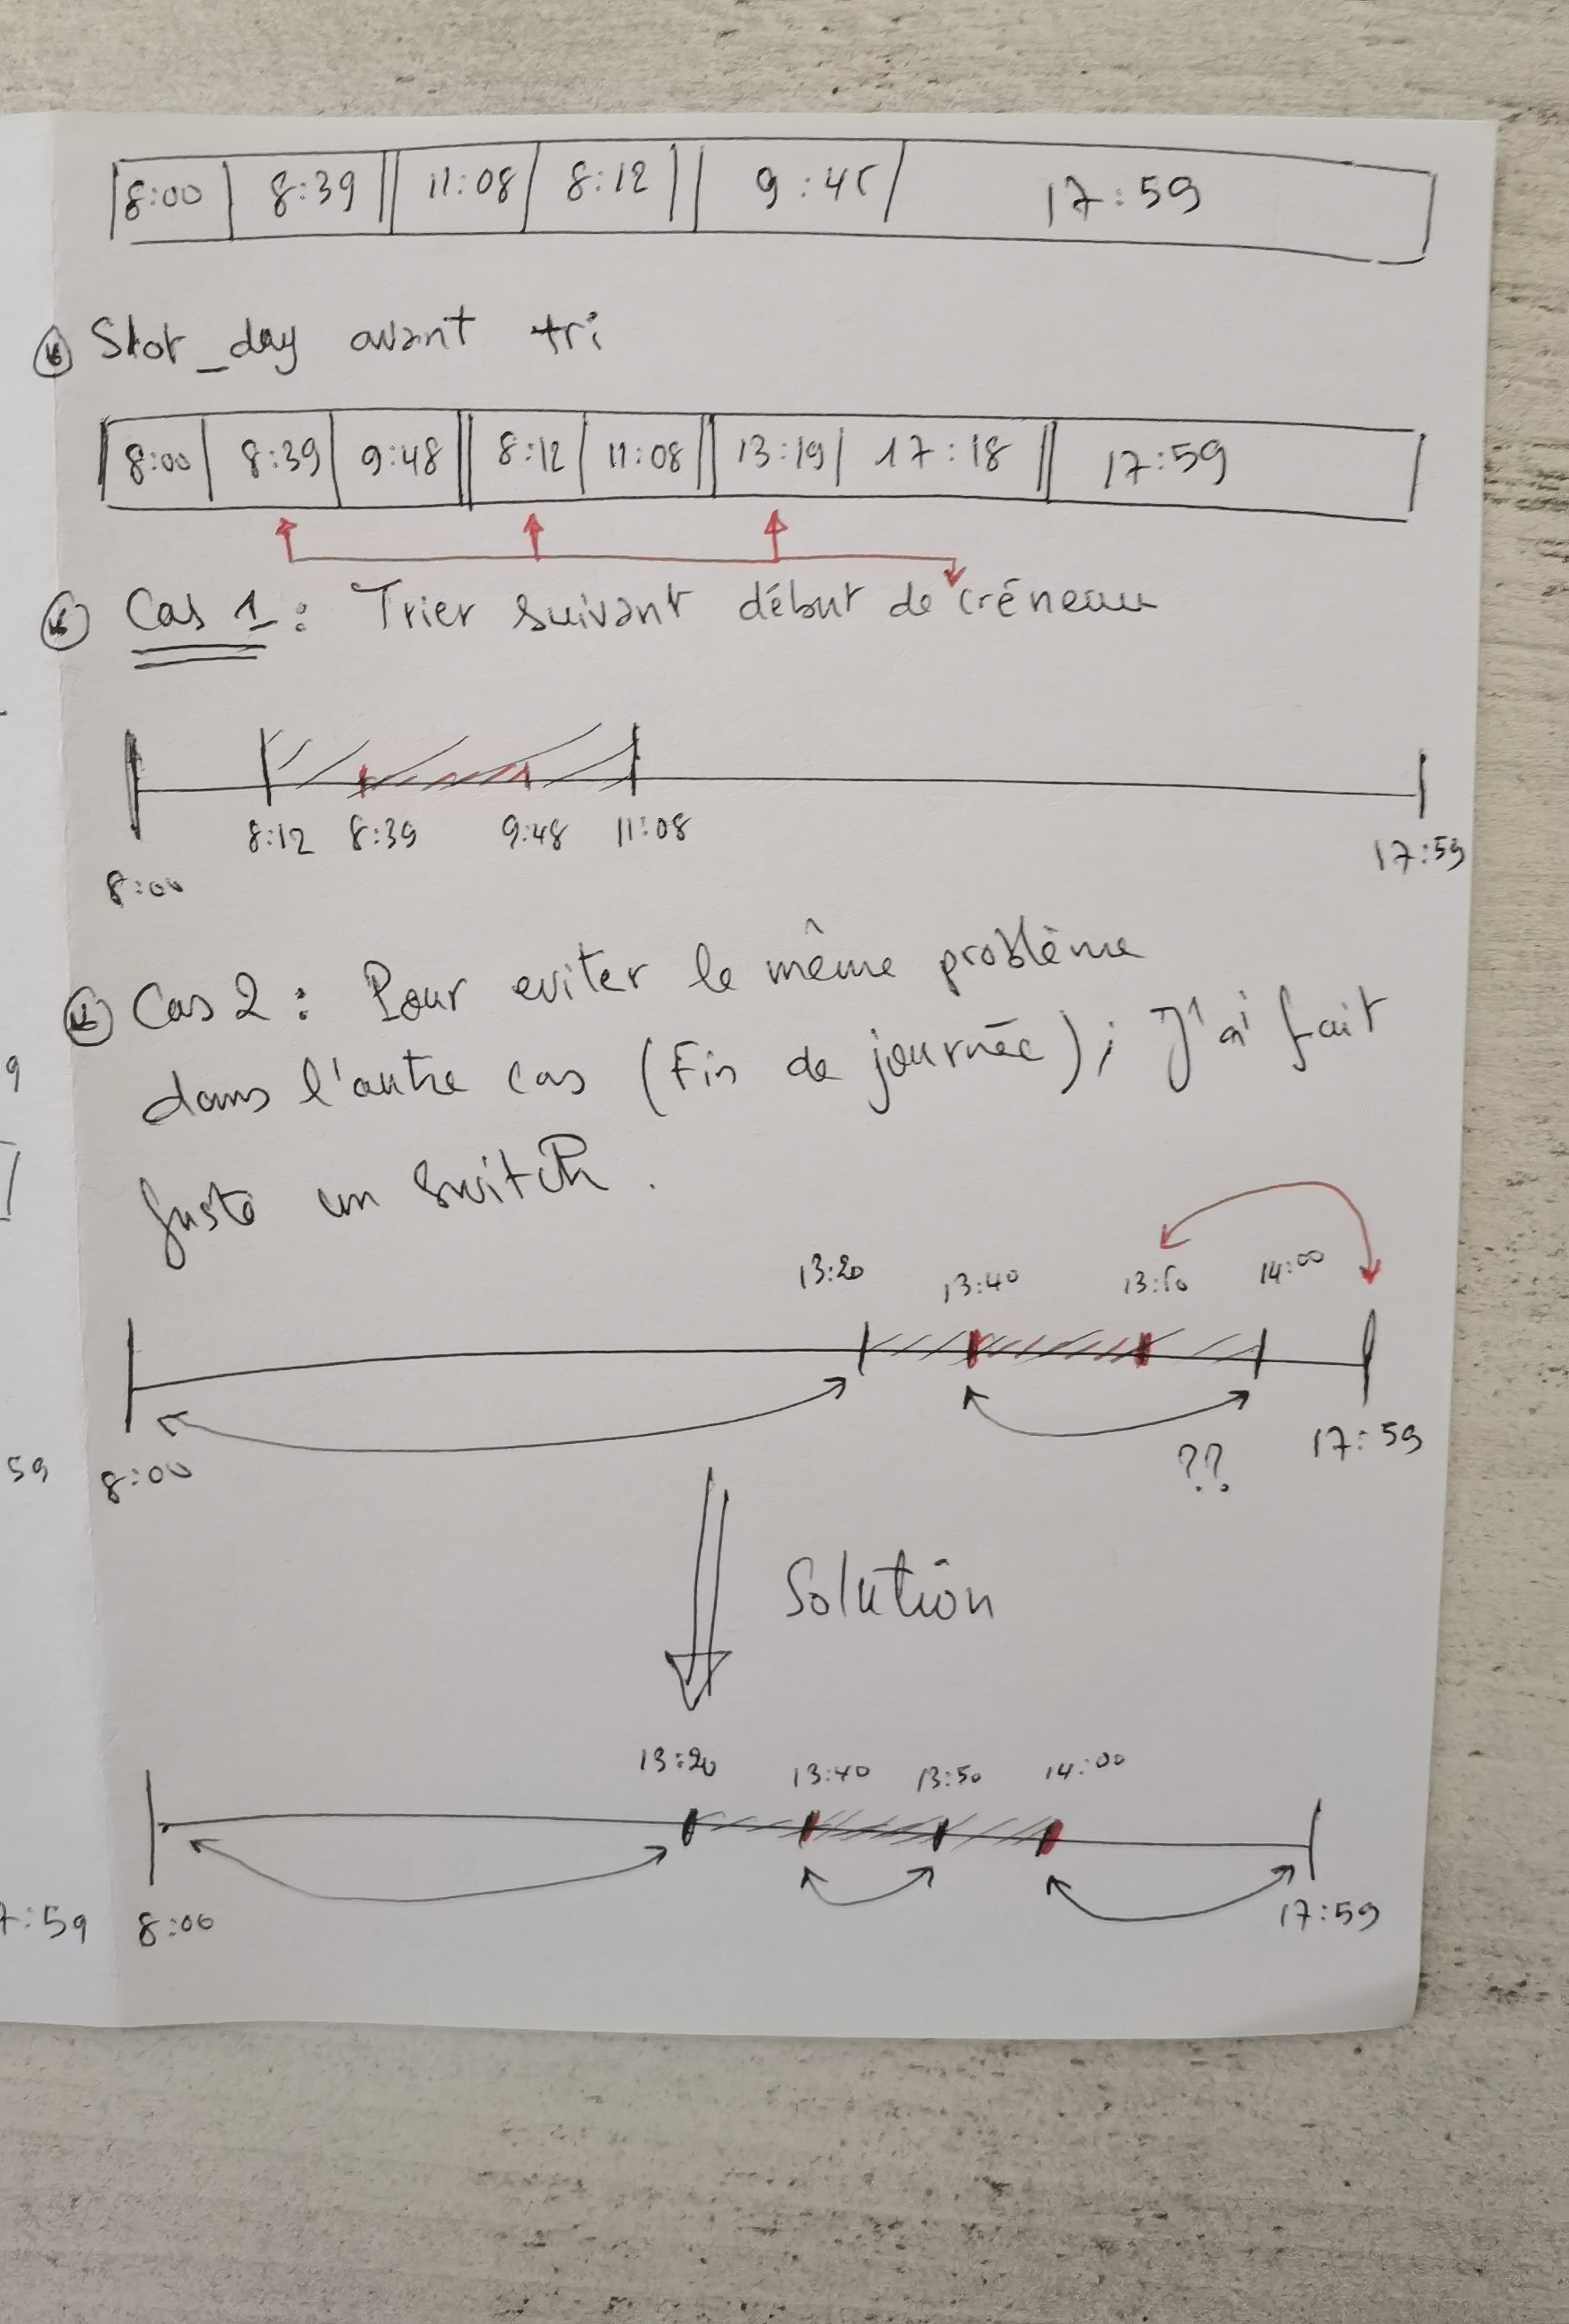 8:00 8:39 11:08 8:12 9:45 17:59
Slot_day avant tri
8:00 8:39 9:48 8:12 11:08 13:19 17:18 17:59
Cas 1 : Trier suivant début de créneau
8:12 8:39 9:48 11:08
8:00 17:59
Cas 2 : Pour eviter le même problème
9
dans l'autre cas (Fin de journée) ; J'ai fait
juste un switch.
13:20 13:40 13:50 14:00
59 8:00 ?? 17:59
Solution
13:20 13:40 13:50 14:00
7:59 8:00 17:59